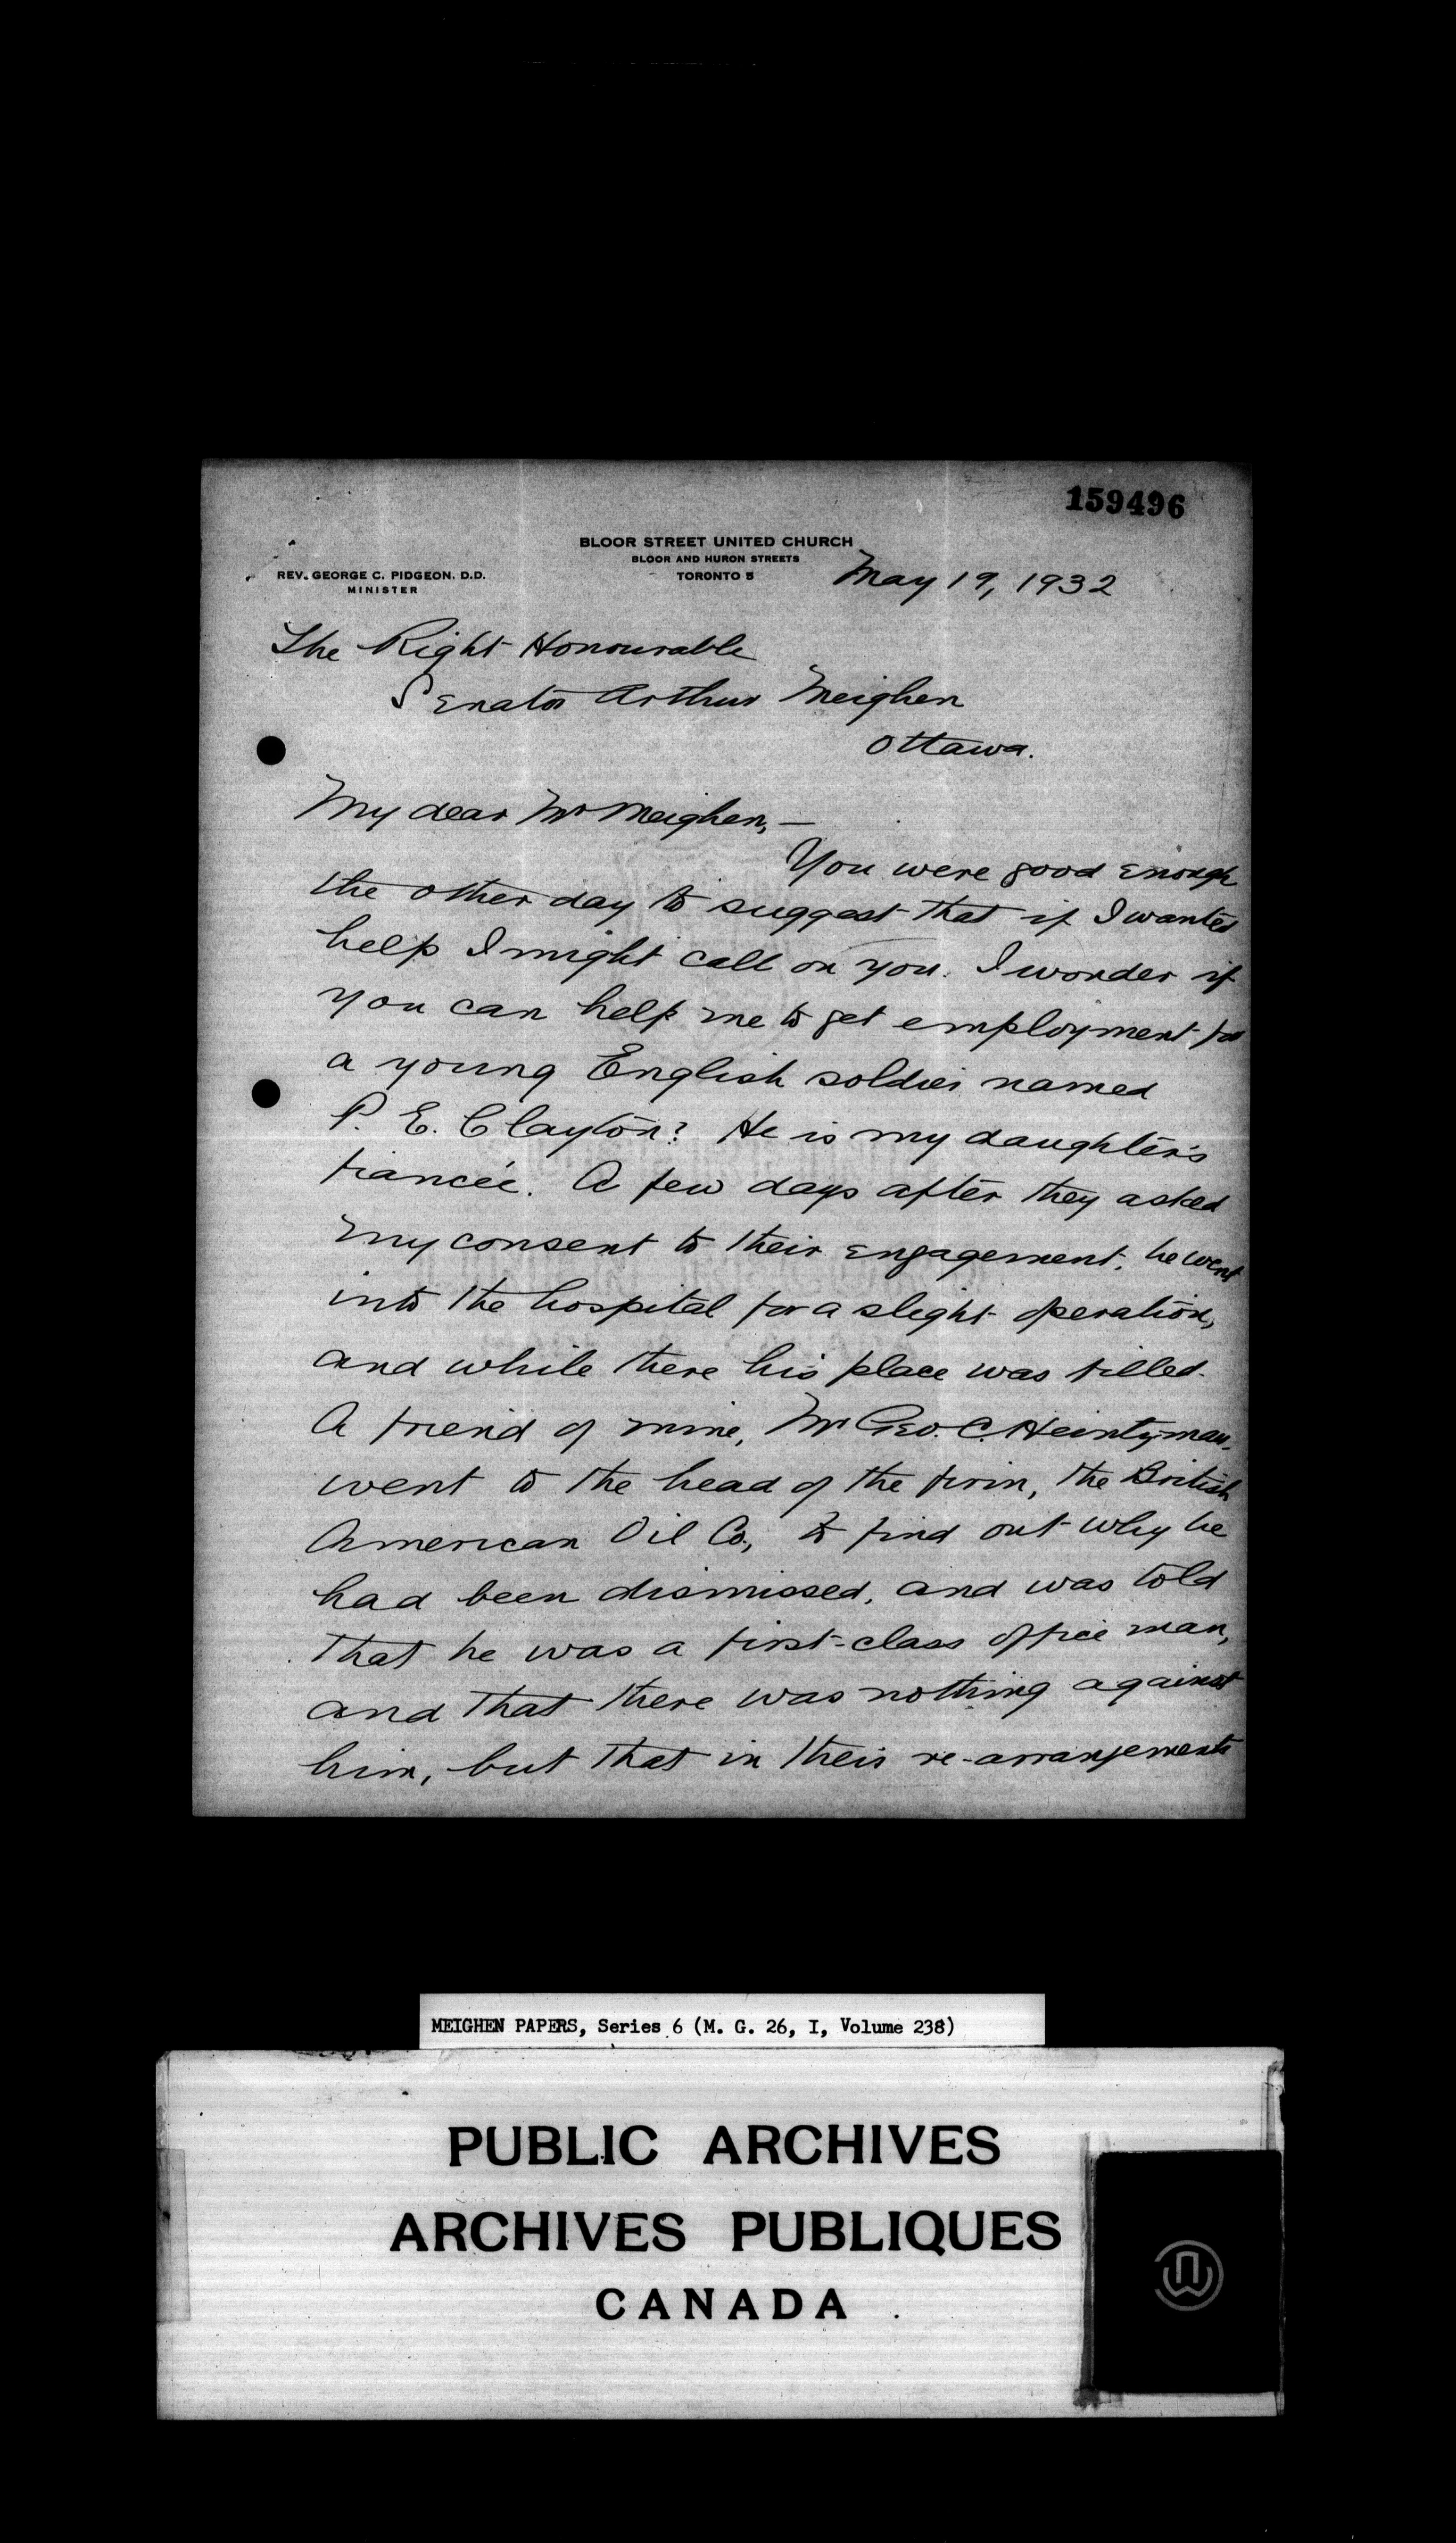 159496
BLOOR STREET UNITED CHURCH
BLOOR AND HURON STREETS
TORONTO 5
REV. GEORGE C. PIDGEON, D.D.
MINISTER
May 19, 1932
The Right Honourable
Senator Arthur Meighen
Ottawa.
My dear Mr Meighen, —
You were good enough
the other day to suggest that if I wanted
help I might call on you. I wonder if
you can help me to get employment for
a young English soldier named
P. E. Clayton? He is my daughter's
fiancée. A few days after they asked
my consent to their engagement, he went
into the hospital for a slight operation,
and while there his place was filled.
A friend of mine, Mr Geo. C. Heintzman,
went to the head of the firm, the British
American Oil Co., to find out why he
had been dismissed, and was told
that he was a first-class office man,
and that there was nothing against
him, but that in their re-arrangements
MEIGHEN PAPERS, Series 6 (M. G. 26, I, Volume 238)
PUBLIC ARCHIVES
ARCHIVES PUBLIQUES
CANADA